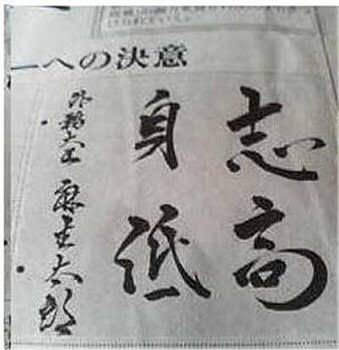 への決意
志高
身低
外務大臣 麻生太郎